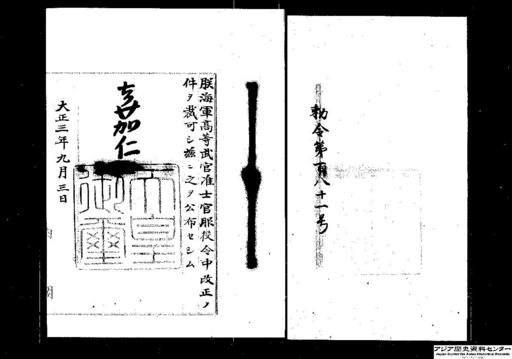 勅令第百八十一号
朕海軍高等武官准士官服役令中改正ノ
件ヲ裁可シ茲ニ之ヲ公布セシム
嘉仁
天皇御璽
大正三年九月三日
内閣
アジア歴史資料センター
Japan Center for Asian Historical Records